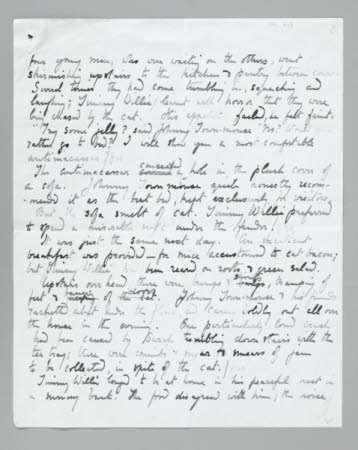 four young mice, who were waiting on the others, went
skirmishing upstairs to the kitchen & pantry between courses.
Several times they had come tumbling in, squeaking and
laughing; Timmy Willie learnt with horror that they were
being chased by the cat. His appetite failed, he felt faint.
"Try some jelly? said Johnny Town-mouse "No? Would
rather go to bed? I will show you a most comfortable

The antimacassar concealed a hole in the plush cover of
a sofa. Johnny Town-mouse quite honestly recom-
mended it as the best bed, kept exclusively for visitors
But the sofa smelt of cat. Timmy Willie preferred
to spend a miserable night under the fender.
It was just the same next day. An excellent
breakfast was provided – for mice accustomed to eat bacon;
but Timmy Willie had been reared on roots & green salad.
Upstairs over head there were bumps & tramping of
feet & of the cat. Johnny Town-mouse & his friends
racketted about under the floors, & came boldly out all over
the house in the evening. One particularly loud crash
had been caused by Sarah tumbling down stairs with the
tea tray; there were crumbs & sugar & smears of jam
to be collected, in spite of the cat.
Timmy Willie longed to be at home in his peaceful nest in
a sunny bank. The food disagreed with him; the noise